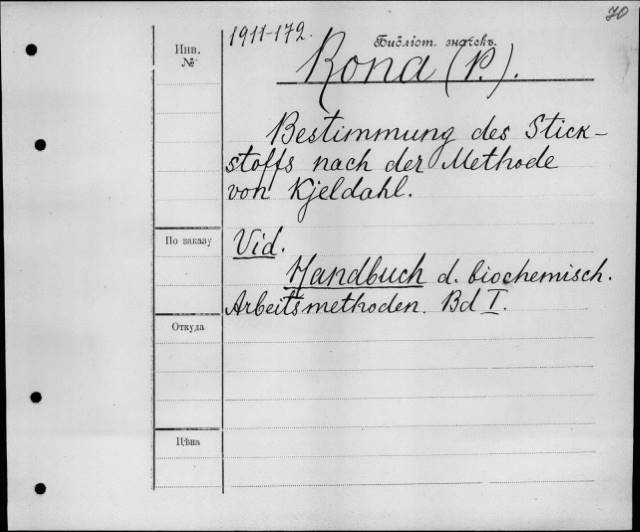 70
1911-172.
Библіот. значекъ.
Инв.
№
Rona (P.).
Bestimmung des Stick-
stoffs nach der Methode
von Kjeldahl.
По заказу
Vid.
Handbuch d. biochemisch.
Arbeitsmethoden. Bd I.
Откуда
Цѣна